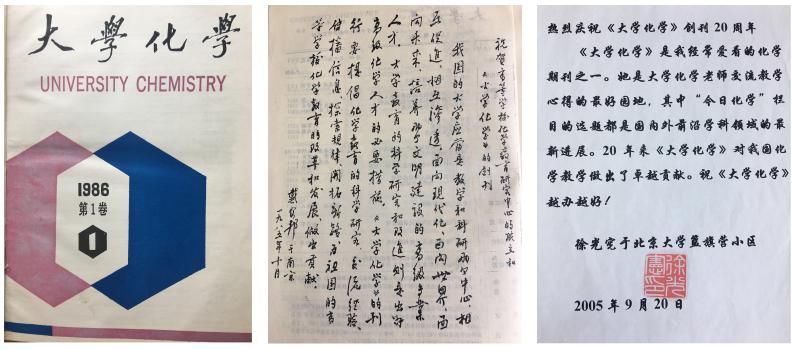 大學化學
UNIVERSITY CHEMISTRY
1986
第1卷
1
祝贺高等学校化学教育研究中心的成立和
《大学化学》的创刊
我国的大学应当是教学和科研两个中心，相
互促进，相互渗透，面向现代化，面向世界，面
向未来，培养两个文明建设的高级专业
人才。大学教育的科学研究和改进则是出好
高级化学人才的必 措施，《大学化学》的刊
行要提倡化学教育的科学研究，交流经验，
传播信息，探索规律，开拓新路，为祖国的高
等学校化学教育的改革和发展，做出贡献。
戴安邦于南京
一九八五年十月
热烈庆祝《大学化学》创刊20周年
《大学化学》是我经常爱看的化学
期刊之一。她是大学化学老师交流教学
心得的最好园地，其中“今日化学”栏
目的选题都是国内外前沿学科领域的最
新进展。20年来《大学化学》对我国化
学教学做出了卓越贡献。祝《大学化学》
越办越好！
徐光宪于北京大学蓝旗营小区
徐光宪印
2005年9月20日